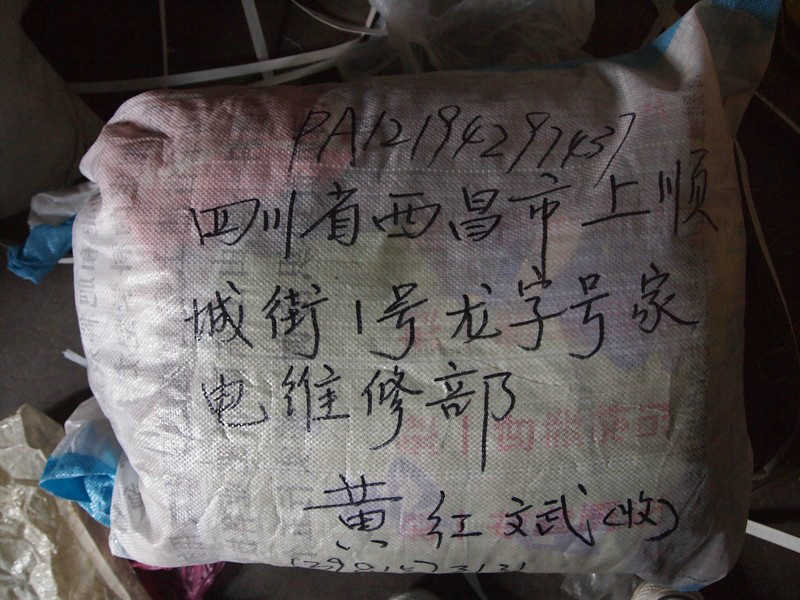 PA12194297437
四川省西昌市上顺
城街1号龙字号家
电维修部
黄红斌(收)